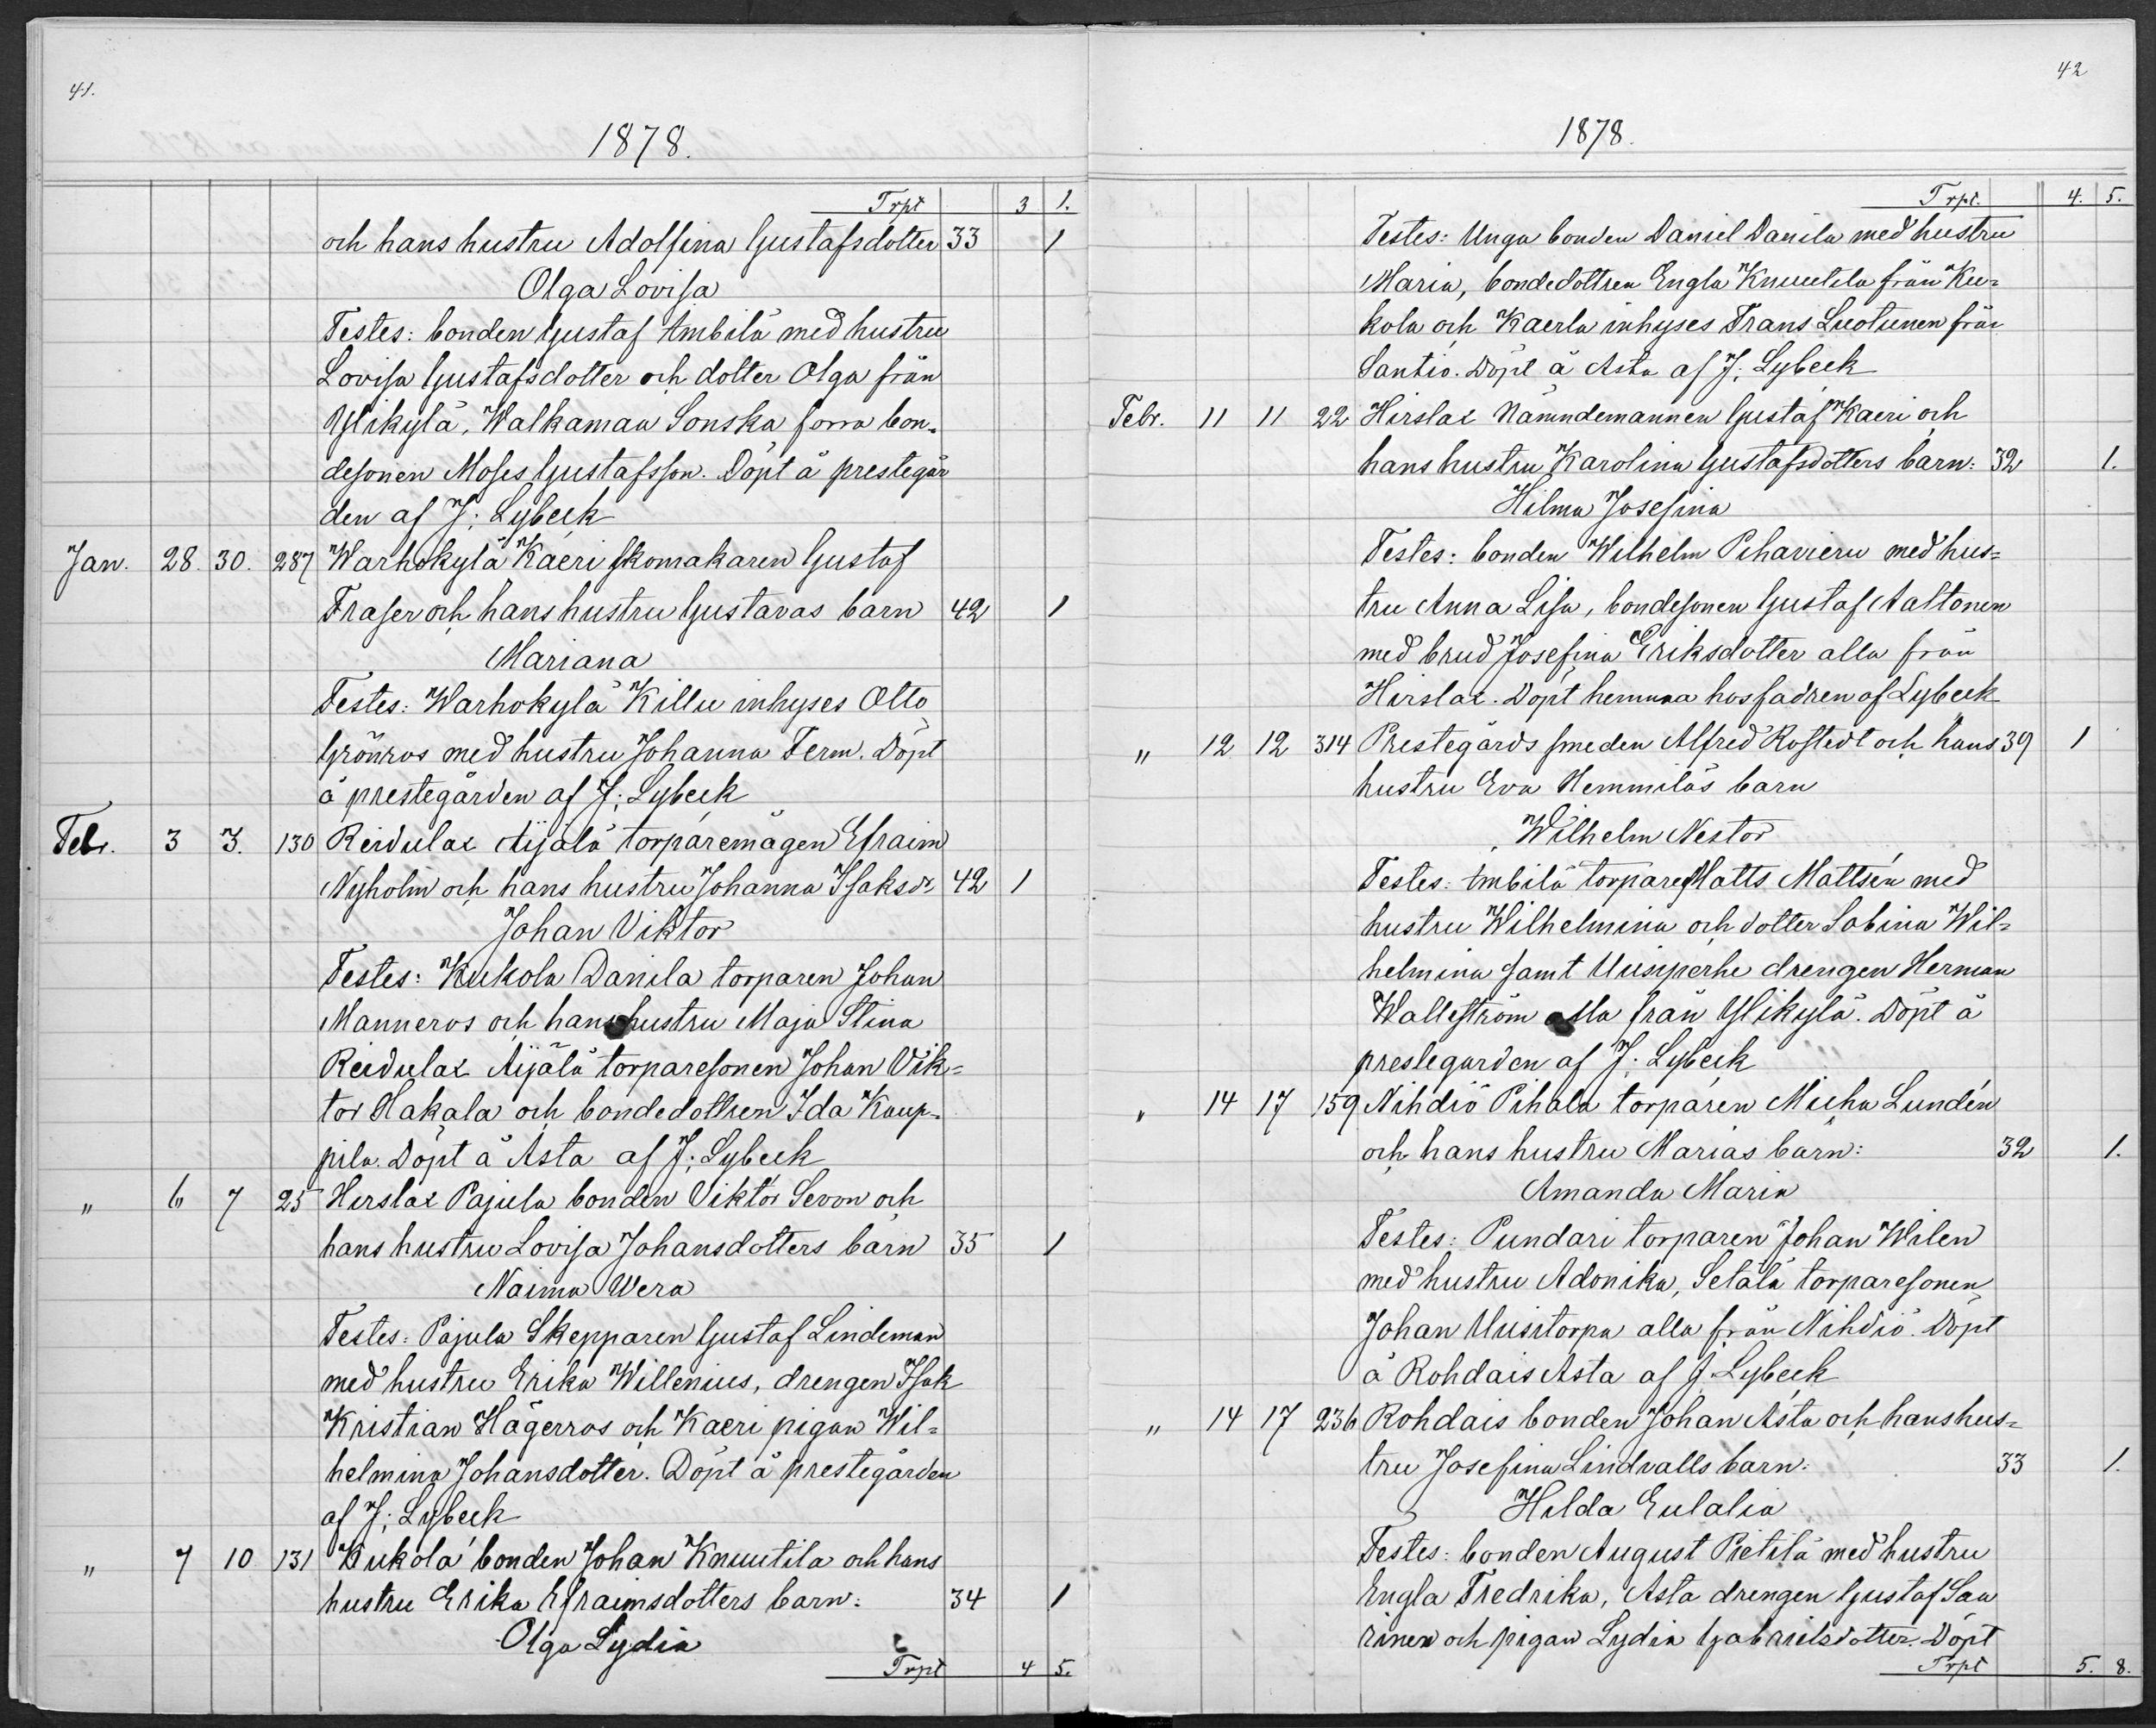 41.
1878.
Trpt 3 1.
och hans hustru Adolfina Gustafsdotter 33 1
Olga Lovisa
Testes: bonden Gustaf Ambilä med hustru
Lovisa Gustafsdotter och dotter Olga från
Ylikylä, Walkamaa Sonska forra bon-
desonen Moses Gustafsson. Döpt å prestegår
den af J; Lybeck
Jan. 28. 30. 287 Warhokylä Kaeri skomakaren Gustaf
Fraser och hans hustru Gustavas barn 42 1
Mariana
Testes: Warhokylä Killu inhyses Otto
Grönros med hustru Johanna Ferm. Döpt
å prestegården af J; Lybeck
Febr. 3 3. 130 Reidulax Äijälä torparemågen Efraim
Nyholm och hans hustru Johanna Isaksdr 42 1
Johan Viktor
Testes: Kukola Danila torparen Johan
Manneros och hans hustru Maja Stina
Reidulax Äijälä torparesonen Johan Vik-
tor Hakala och bondedottren Ida Kaup-
pila. Döpt å Asta af J; Lybeck
" 6 7 25 Hirslax Pajula bonden Viktor Sevon och
hans hustru Lovisa Johansdotters barn 35 1
Naima Wera
Testes: Pajula Skepparen Gustaf Lindeman
med hustru Erika Willenius, drengen Isak
Kristian Hägerros och Kaeri pigan Wil-
helmina Johansdotter. Döpt å prestegården
af J; Lybeck
" 7 10 131 Kukola bonden Johan Knuutila och hans
hustru Erika Efraimsdotters barn: 34 1
Olga Lydia
Trpt 4 5.
42
1878.
Trpt. 4. 5.
Testes: Unga bonden Daniel Danila med hustru
Maria, bondedottren Engla Knuutila från Ku-
kola och Kaerla inhyses Frans Luotunen från
Santio. Döpt å Asta af J; Lybeck
Febr. 11 11 22 Hirslax Nämndemannen Gustaf Kaeri och
hans hustru Karolina Gustafsdotters barn: 32 1.
Hilma Josefina
Testes: bonden Wilhelm Pihavieru med hus-
tru Anna Lisa, bondesonen Gustaf Aaltonen
med brud Josefina Eriksdotter alla från
Hirslax. Döpt hemma hos fadren af Lybeck
" 12 12 314 Prestegårds smeden Alfred Rostedt och hans 39 1
hustru Eva Hemmiläs barn
Wilhelm Nestor
Testes: Ambilä torparen Matts Mattsén med
hustru Wilhelmina och dotter Sabina Wil-
helmina samt Uusiperhe drengen Herman
Walleström alla från Ylikylä. Döpt å
prestegarden af J; Lybeck
" 14 17 159 Nihdiö Pihala torparen Micha Lundén
och hans hustru Marias barn: 32 1.
Amanda Maria
Testes: Pundari torparen Johan Wilen
med hustru Adonika, Setälä torparesonen
Johan Uusitorpa alla från Nihdiö. Döpt
å Rohdais Asta af J. Lybeck
" 14 17 236 Rohdais bonden Johan Asta och hans hus-
tru Josefina Lindvalls barn: 33 1.
Hilda Eulalia
Testes: bonden August Pietilä med hustru
Engla Fredrika, Asta drengen Gustaf Saa
rinen och pigan Lydia Gabrielsdotter. Döpt
Trpt 5. 8.